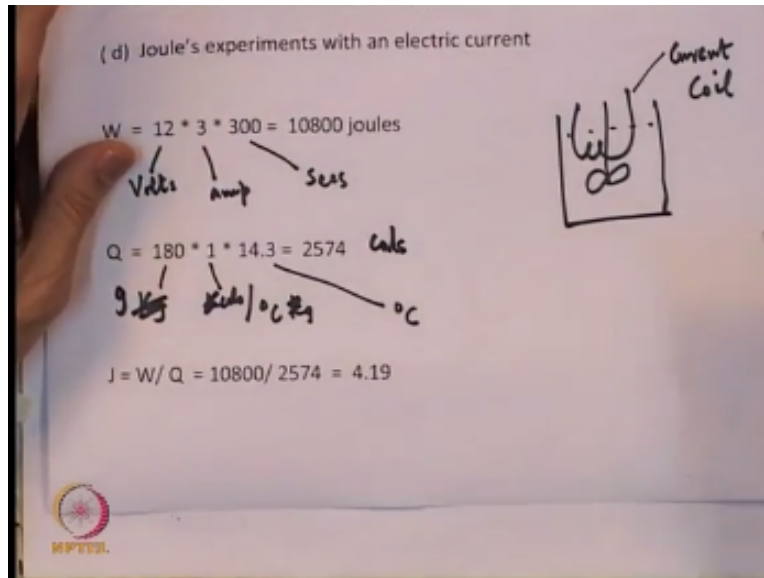 (d) Joule's experiments with an electric current
Current
Coil
W = 12 * 3 * 300 = 10800 joules
Volts amp Secs
Q = 180 * 1 * 14.3 = 2574 Cals
g /°C °C
J = W/ Q = 10800/ 2574 = 4.19
NPTEL